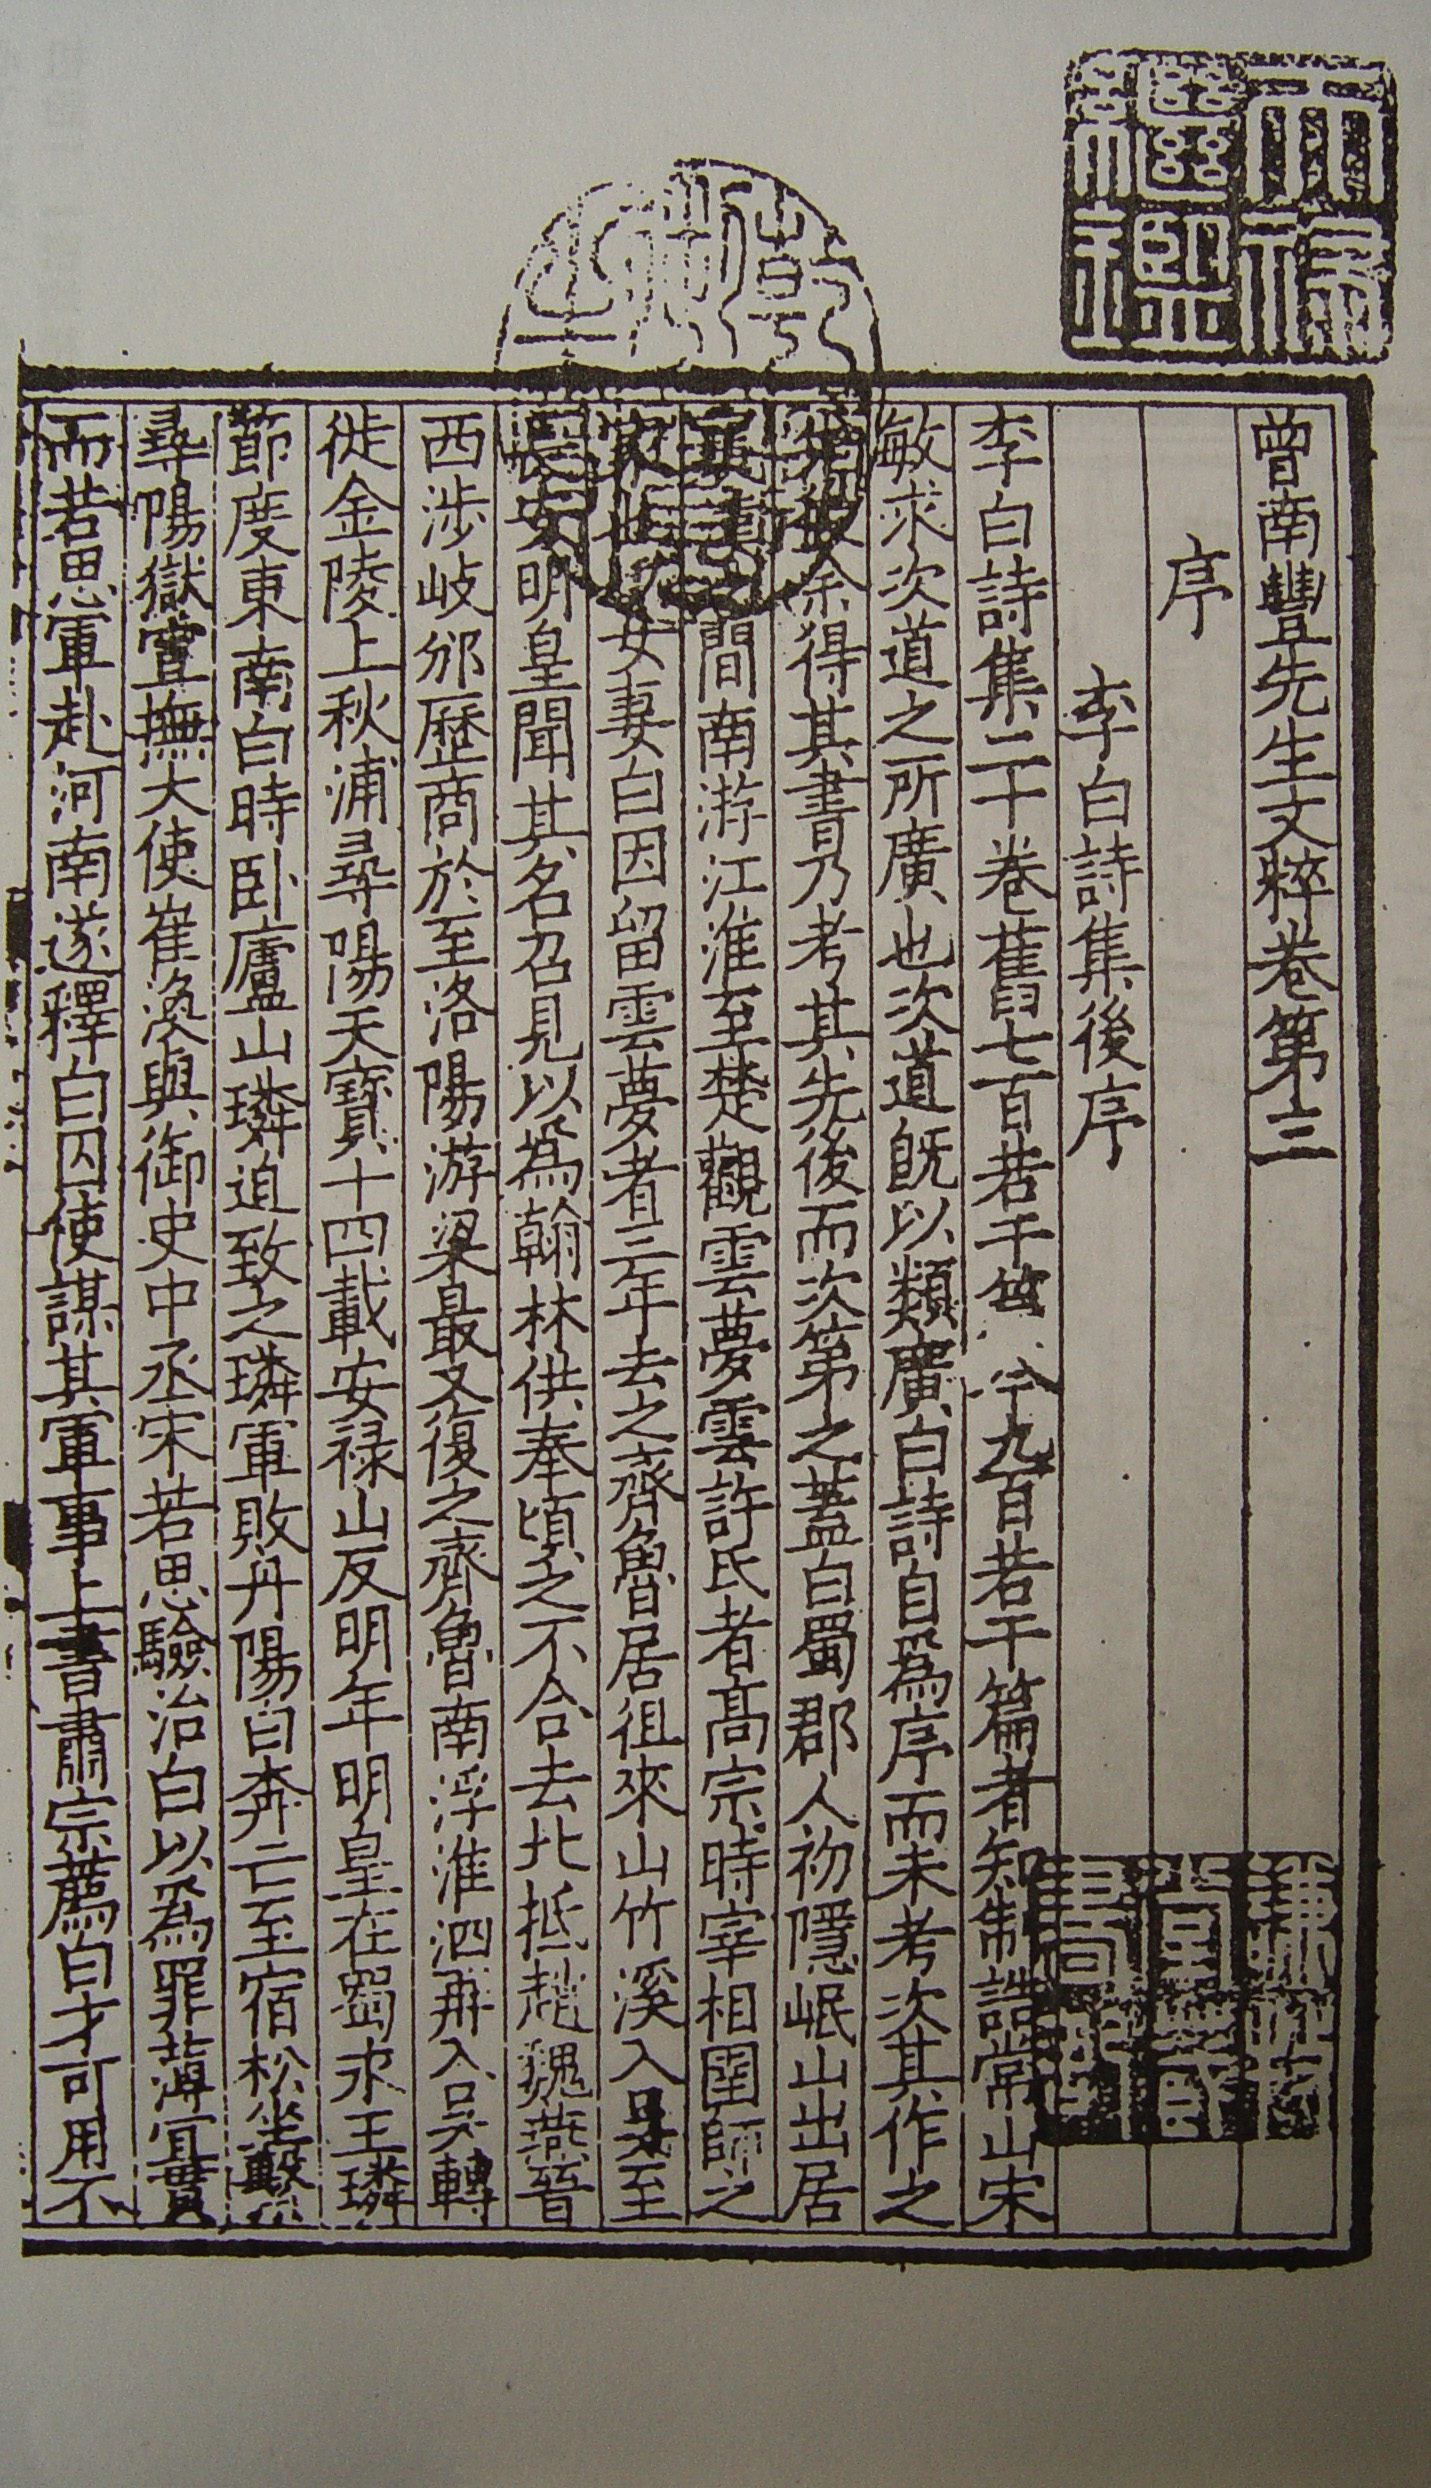 曾南豐先生文粹卷第三
序
李白詩集後序
李白詩集二十卷舊七百若干篇今九百若干篇者知制誥常山宋
敏求次道之所廣也次道既以類廣白詩自爲序而未考次其作之
先後余得其書乃考其先後而次第之蓋白蜀郡人初隱岷山出居
襄漢之間南游江淮至楚觀雲夢雲夢許氏者高宗時宰相圉師之
家也以女妻白因留雲夢者三年去之齊魯居徂來山竹溪入吳至
長安明皇聞其名召見以爲翰林供奉頃之不合去北抵趙魏燕晉
西涉岐邠歷商於至洛陽游梁最久復之齊魯南浮淮泗再入吳轉
徙金陵上秋浦尋陽天寶十四載安祿山反明年明皇在蜀永王璘
節度東南白時臥廬山璘迫致之璘軍敗丹陽白奔亡至宿松坐繫
尋陽獄宣撫大使崔渙與御史中丞宋若思驗治白以爲罪薄宜貰
而若思軍赴河南遂釋白囚使謀其軍事上書肅宗薦白才可用不